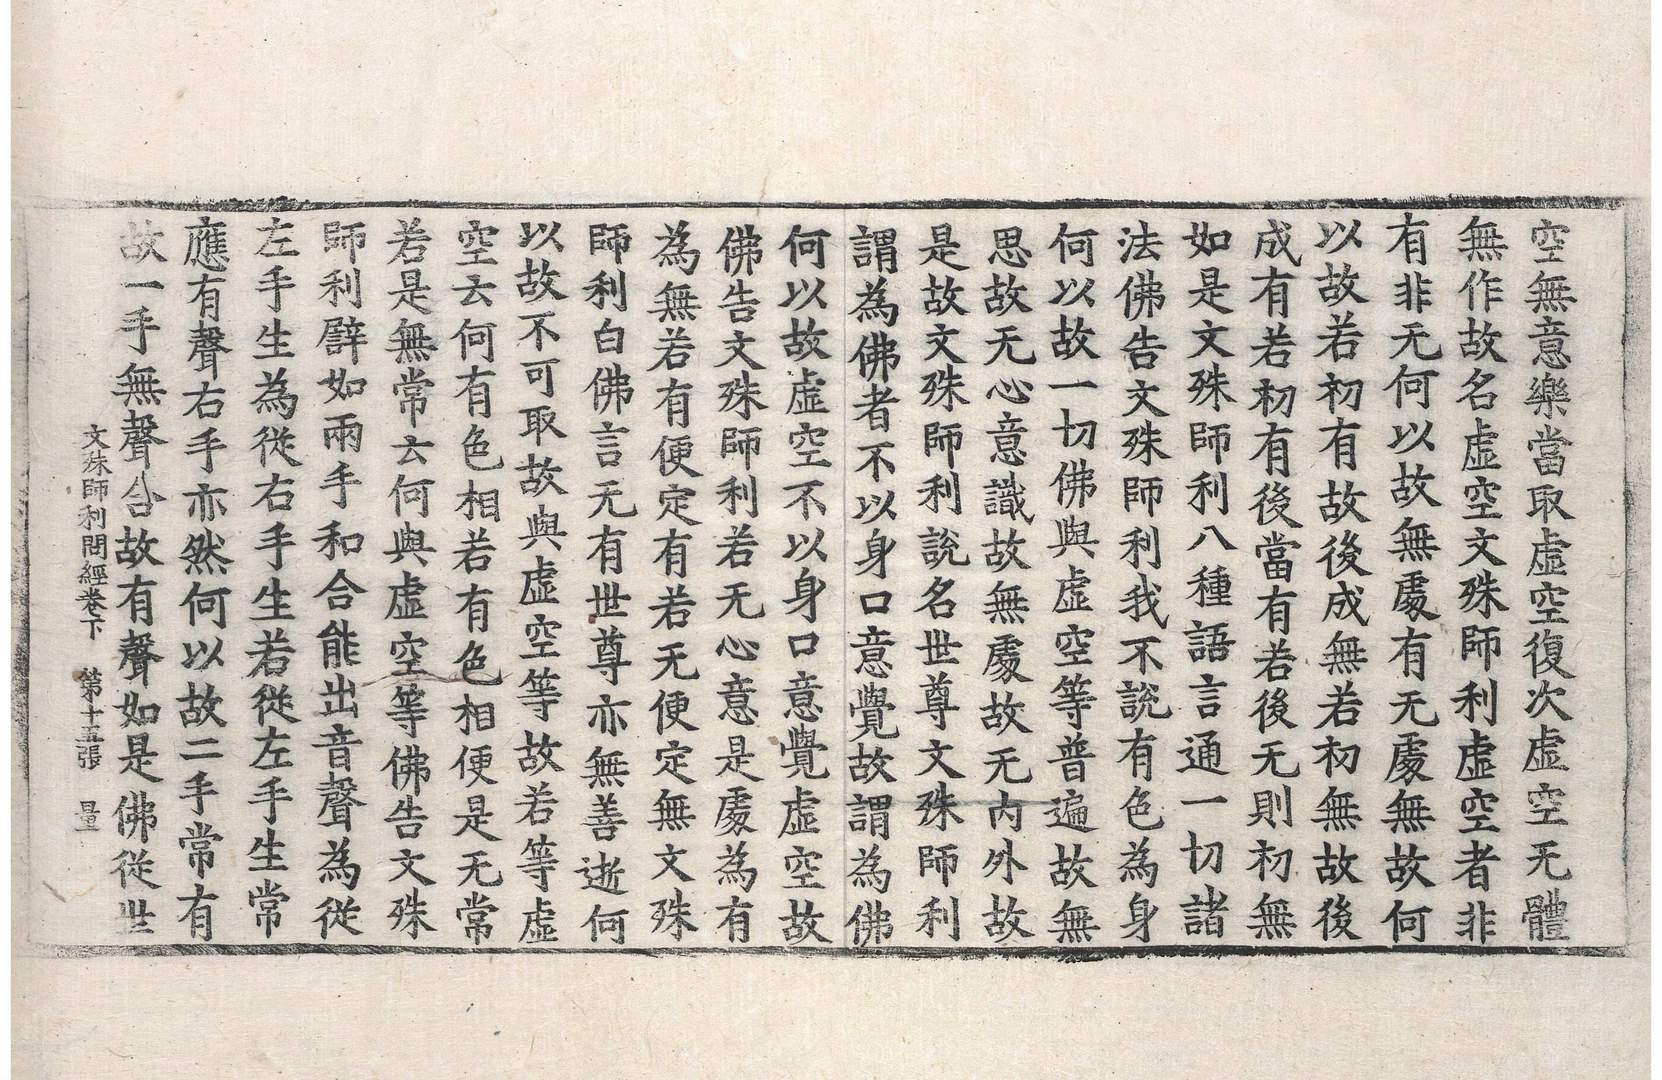 空無意樂當取虛空復次虛空无體
無作故名虛空文殊師利虛空者非
有非无何以故無處有无處無故何
以故若初有故後成無若初無故後
成有若初有後當有若後无則初無
如是文殊師利八種語言通一切諸
法佛告文殊師利我不說有色為身
何以故一切佛與虛空等普遍故無
思故无心意識故無處故无內外故
是故文殊師利說名世尊文殊師利
謂為佛者不以身口意覺故謂為佛
何以故虛空不以身口意覺虛空故
佛告文殊師利若无心意是處為有
為無若有便定有若无便定無文殊
師利白佛言无有世尊亦無善逝何
以故不可取故與虛空等故若等虛
空云何有色相若有色相便是无常
若是無常云何與虛空等佛告文殊
師利譬如兩手和合能出音聲為從
左手生為從右手生若從左手生常
應有聲右手亦然何以故二手常有
故一手無聲合故有聲如是佛從世
文殊師利問經卷下 第十五張 量